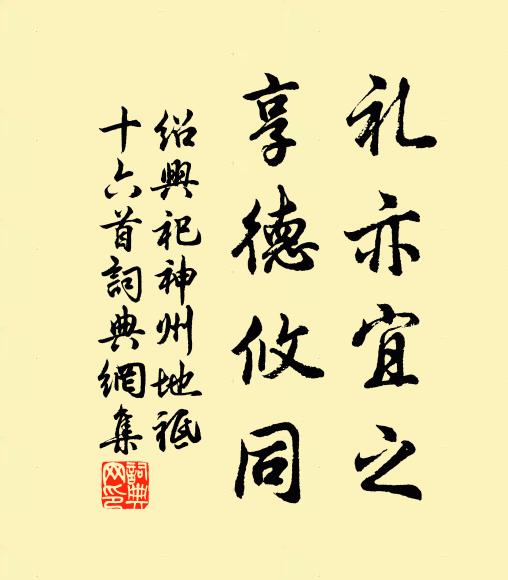 礼亦宜之
享德攸同
绍興祀神州地祗
十六首詞典網集
詞典網印